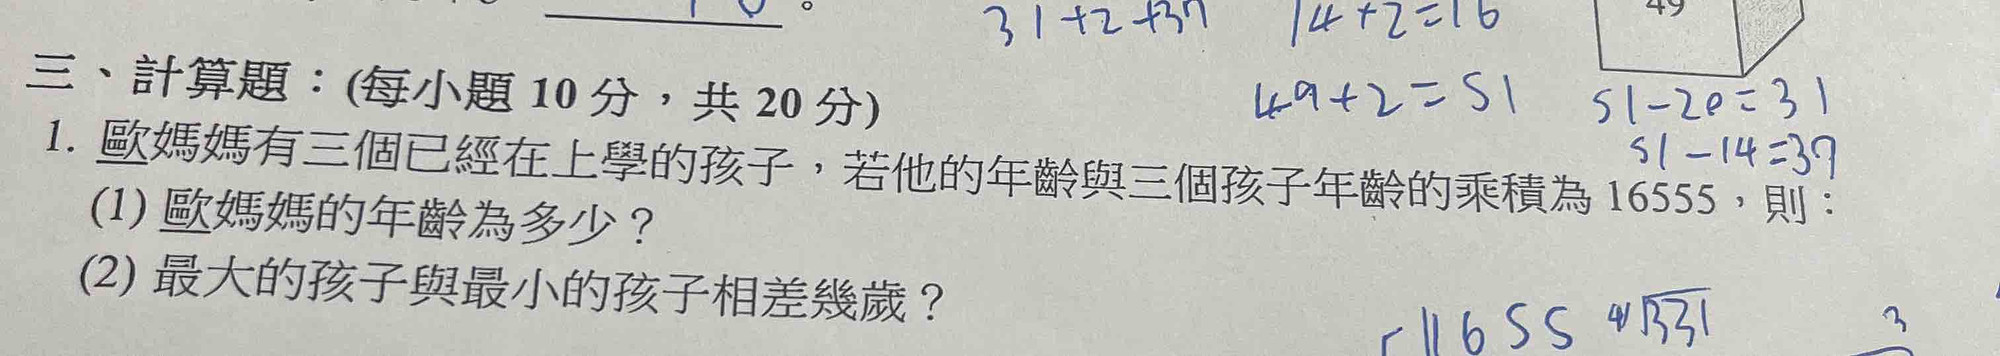 31+2+37 14+2=16 49
三、計算題：(每小題 10 分，共 20 分)
49+2=51 51-20=31
51-14=37
1. 歐媽媽有三個已經在上學的孩子，若他的年齡與三個孩子年齡的乘積為 16555，則：
(1) 歐媽媽的年齡為多少？
(2) 最大的孩子與最小的孩子相差幾歲？
1655 331
3